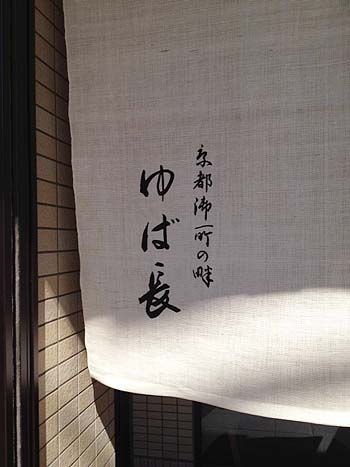 京都御所の畔
ゆば長